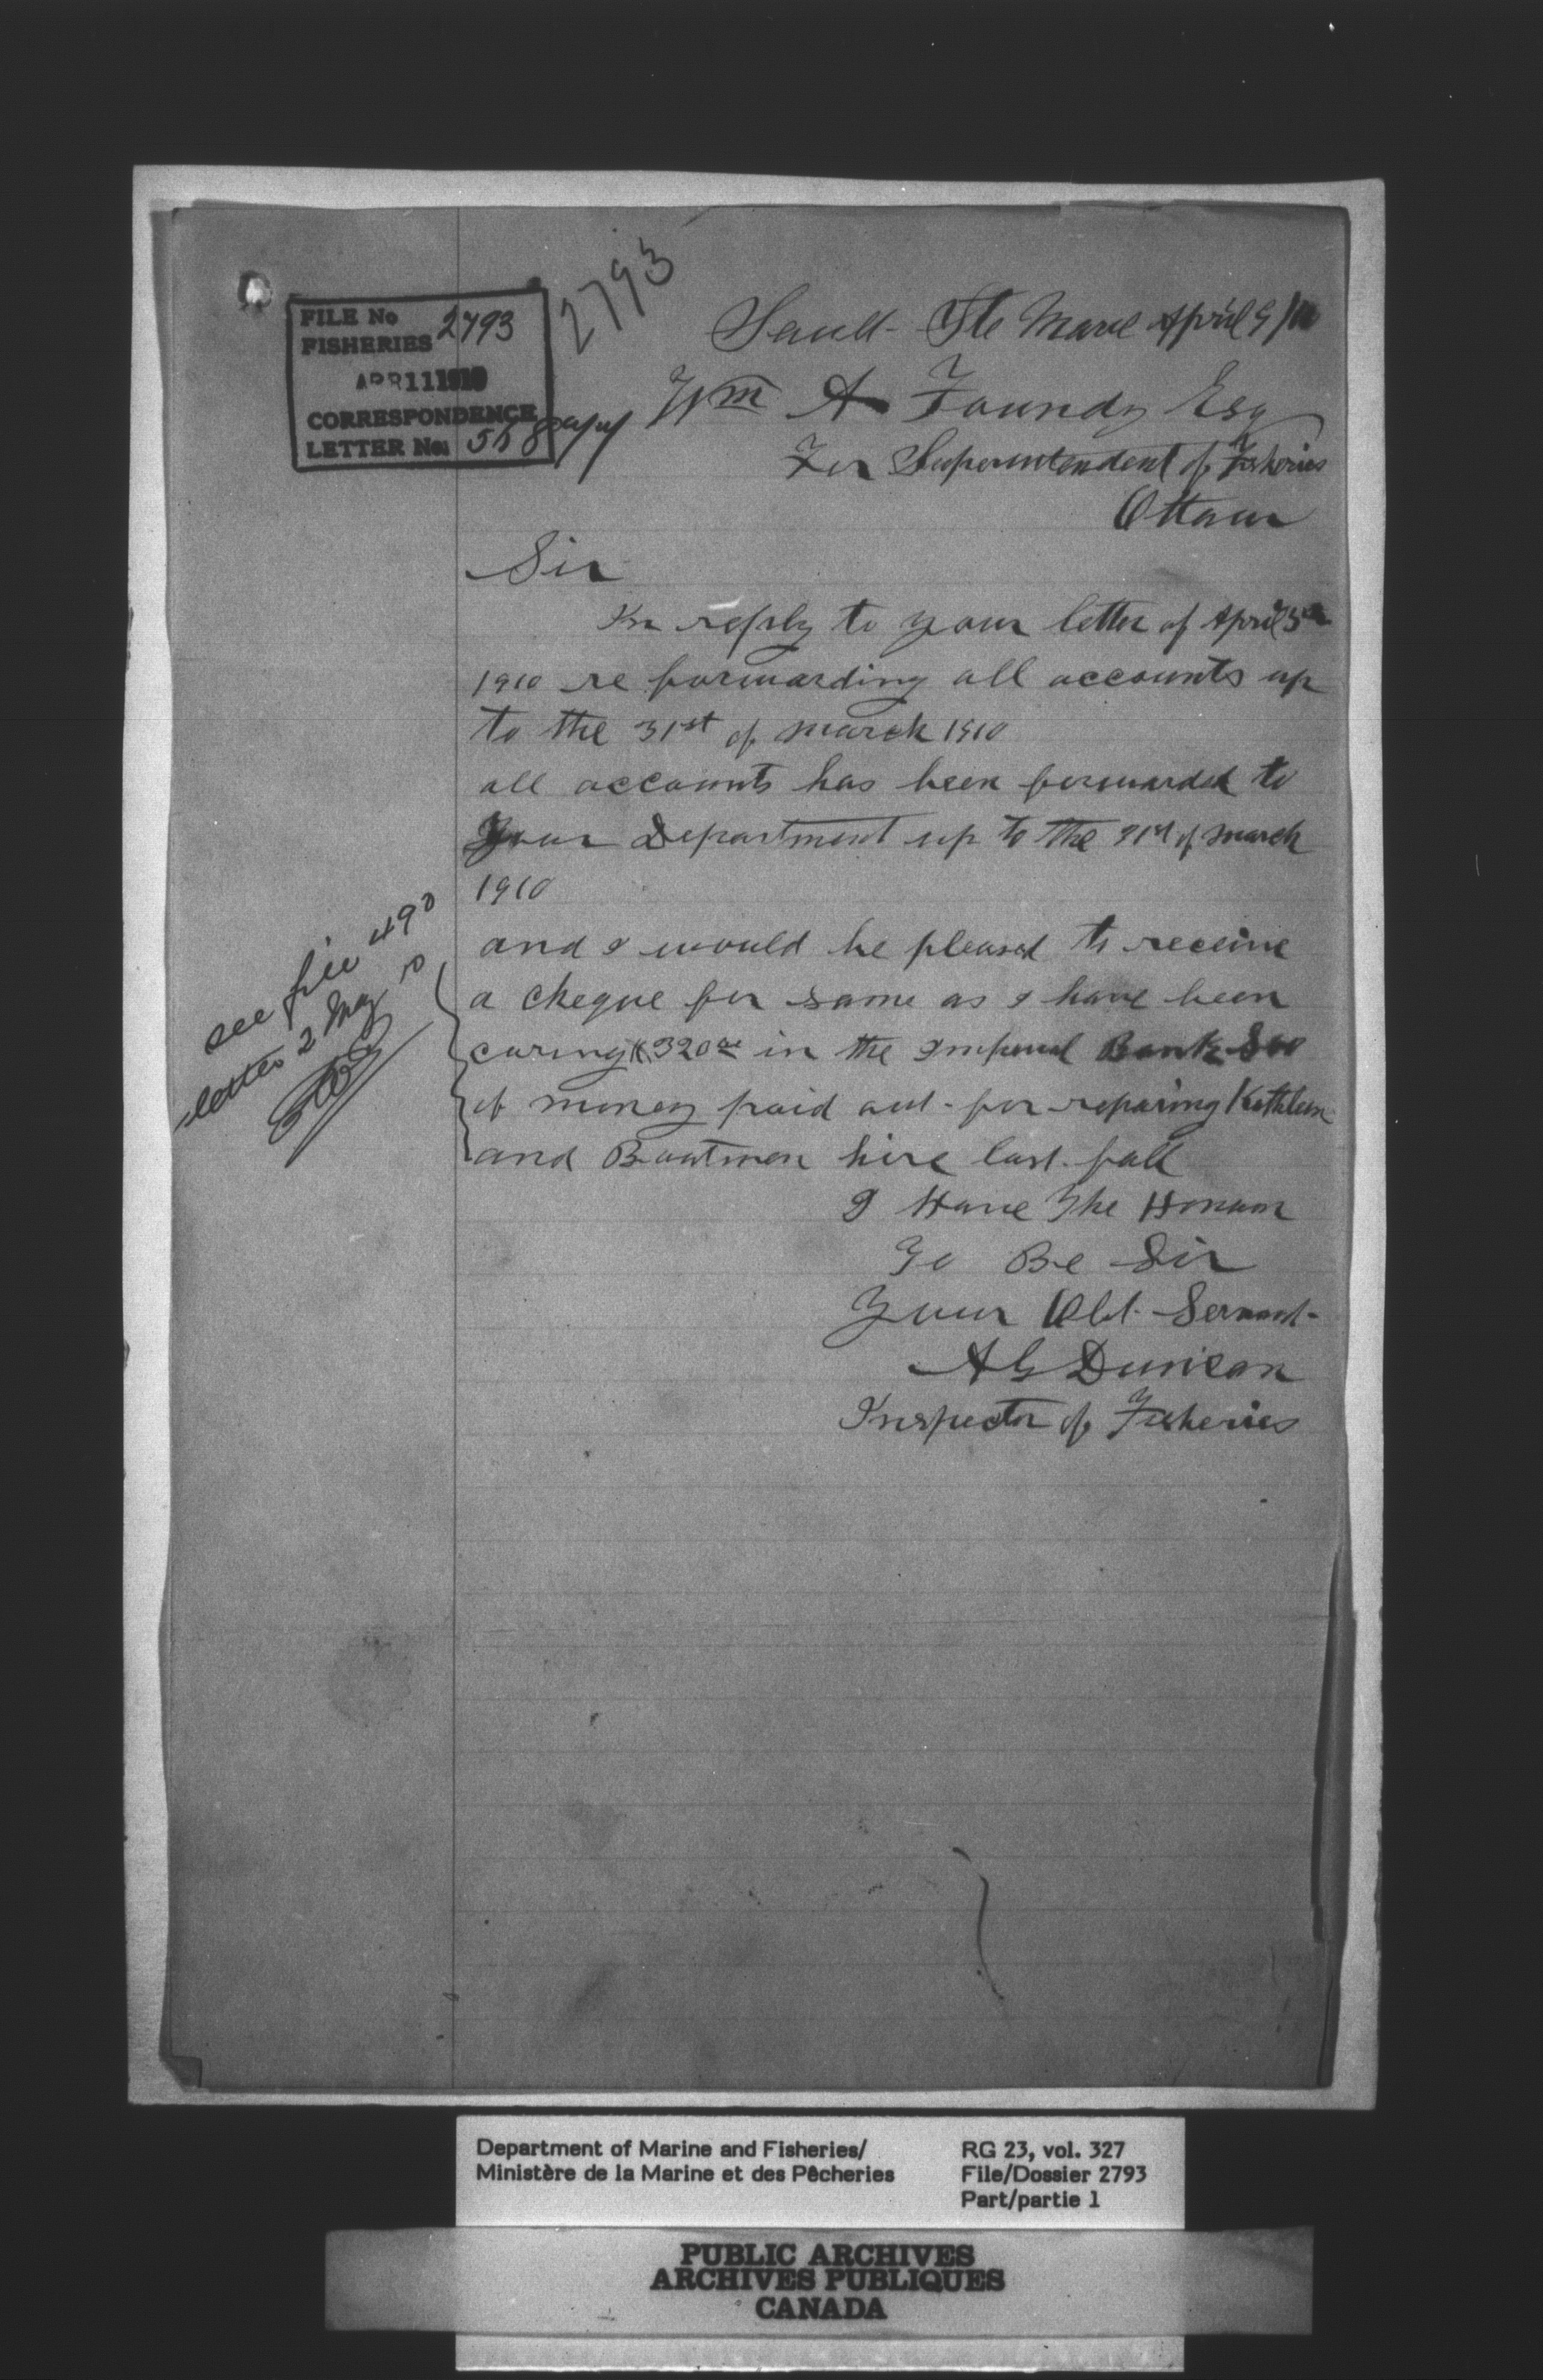 2793
FILE No
FISHERIES 2793
APR 11 1910
CORRESPONDENCE
LETTER No: 568
Sault Ste Marie April 9/10
Wm A Foundy Esq
For Superintendent of Fisheries
Ottawa
Sir
In reply to your letter of April 5th
1910 re forwarding all accounts up
to the 31st of march 1910
all accounts has been forwarded to
Your Department up to the 31st of march
1910
and I would be pleased to receive
a cheque for same as I have been
caring $320 00 in the Imperial Bank Soo
of money paid out for reparing Kathleen
and Boatmen hire last fall
I Have The Honour
To Be Sir
Your Obt Servant
A G Duncan
Inspector of Fisheries
see file 490
letter 2 May 10
Department of Marine and Fisheries/
Ministère de la Marine et des Pêcheries
RG 23, vol. 327
File/Dossier 2793
Part/partie 1
PUBLIC ARCHIVES
ARCHIVES PUBLIQUES
CANADA